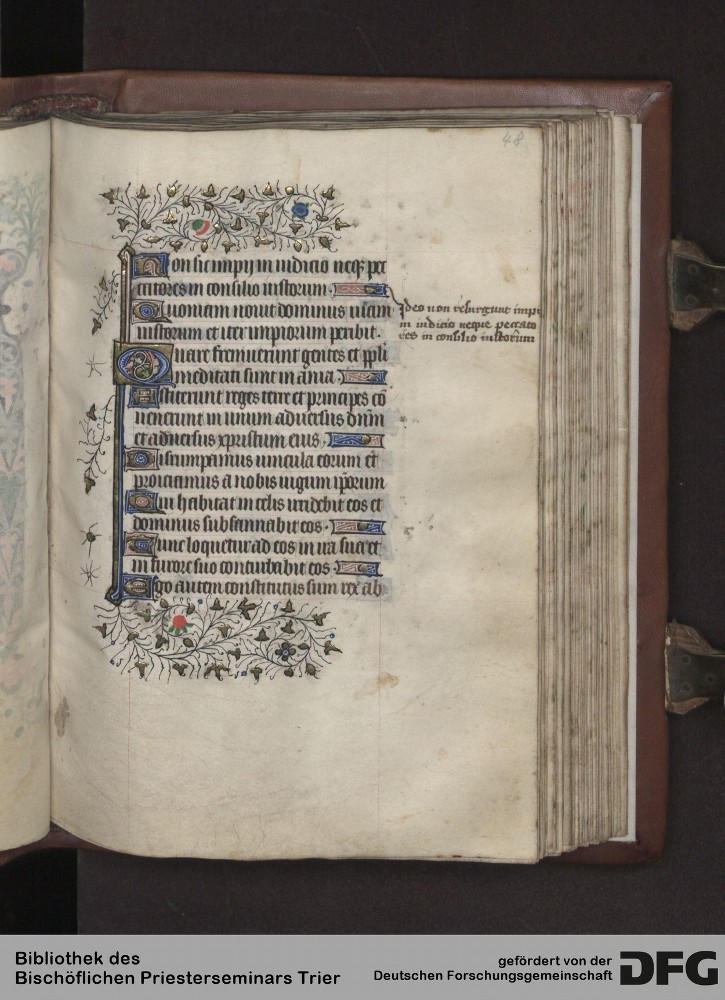 48
Non sic impij in iudicio neqȝ pec
catores in consilio iustorum.
Quoniam nouit dominus uiam
iustorum et iter impiorum peribit.
Quare fremuerunt gentes et ppl̄i
meditati sunt inania.
Astiterunt reges terre et principes cō
uenerunt in unum aduersus dn̄m
et aduersus xpristum eius.
Dirumpamus uincula eorum et
proiciamus a nobis iugum ip̄orum
Qui habitat in celis irridebit eos et
dominus subsannabit eos.
Tunc loquetur ad eos in ira sua et
in furore suo conturbabit eos.
Ego autem constitutus sum rex ab
Ideo non resurgunt impi
in iudicio neque peccato
res in consilio iustorum
Bibliothek des
Bischöflichen Priesterseminars Trier
gefördert von der
Deutschen Forschungsgemeinschaft
DFG